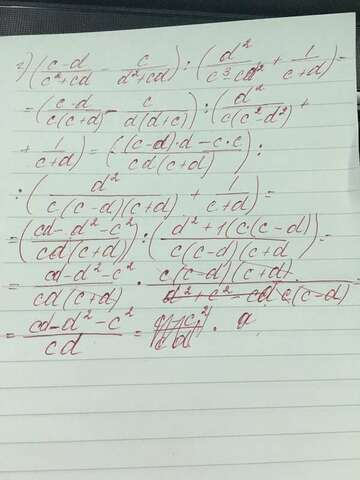 2) ((c-d)/(c²+cd) - c/(d²+cd)) : (d²/(c³-cd²) + 1/(c+d)) =
= ((c-d)/(c(c+d)) - c/(d(d+c))) : (d²/(c(c²-d²)) +
+ 1/(c+d)) = (((c-d)·d-c·c)/(cd(c+d))) :
: (d²/(c(c-d)(c+d)) + 1/(c+d)) =
= ((cd-d²-c²)/(cd(c+d))) : ((d²+1(c(c-d))/(c(c-d)(c+d)) =
= (cd-d²-c²)/(cd(c+d)) · (c(c-d)(c+d))/(d²+c²-cd c(c-d)) =
= (cd-d²-c²)/(cd) =